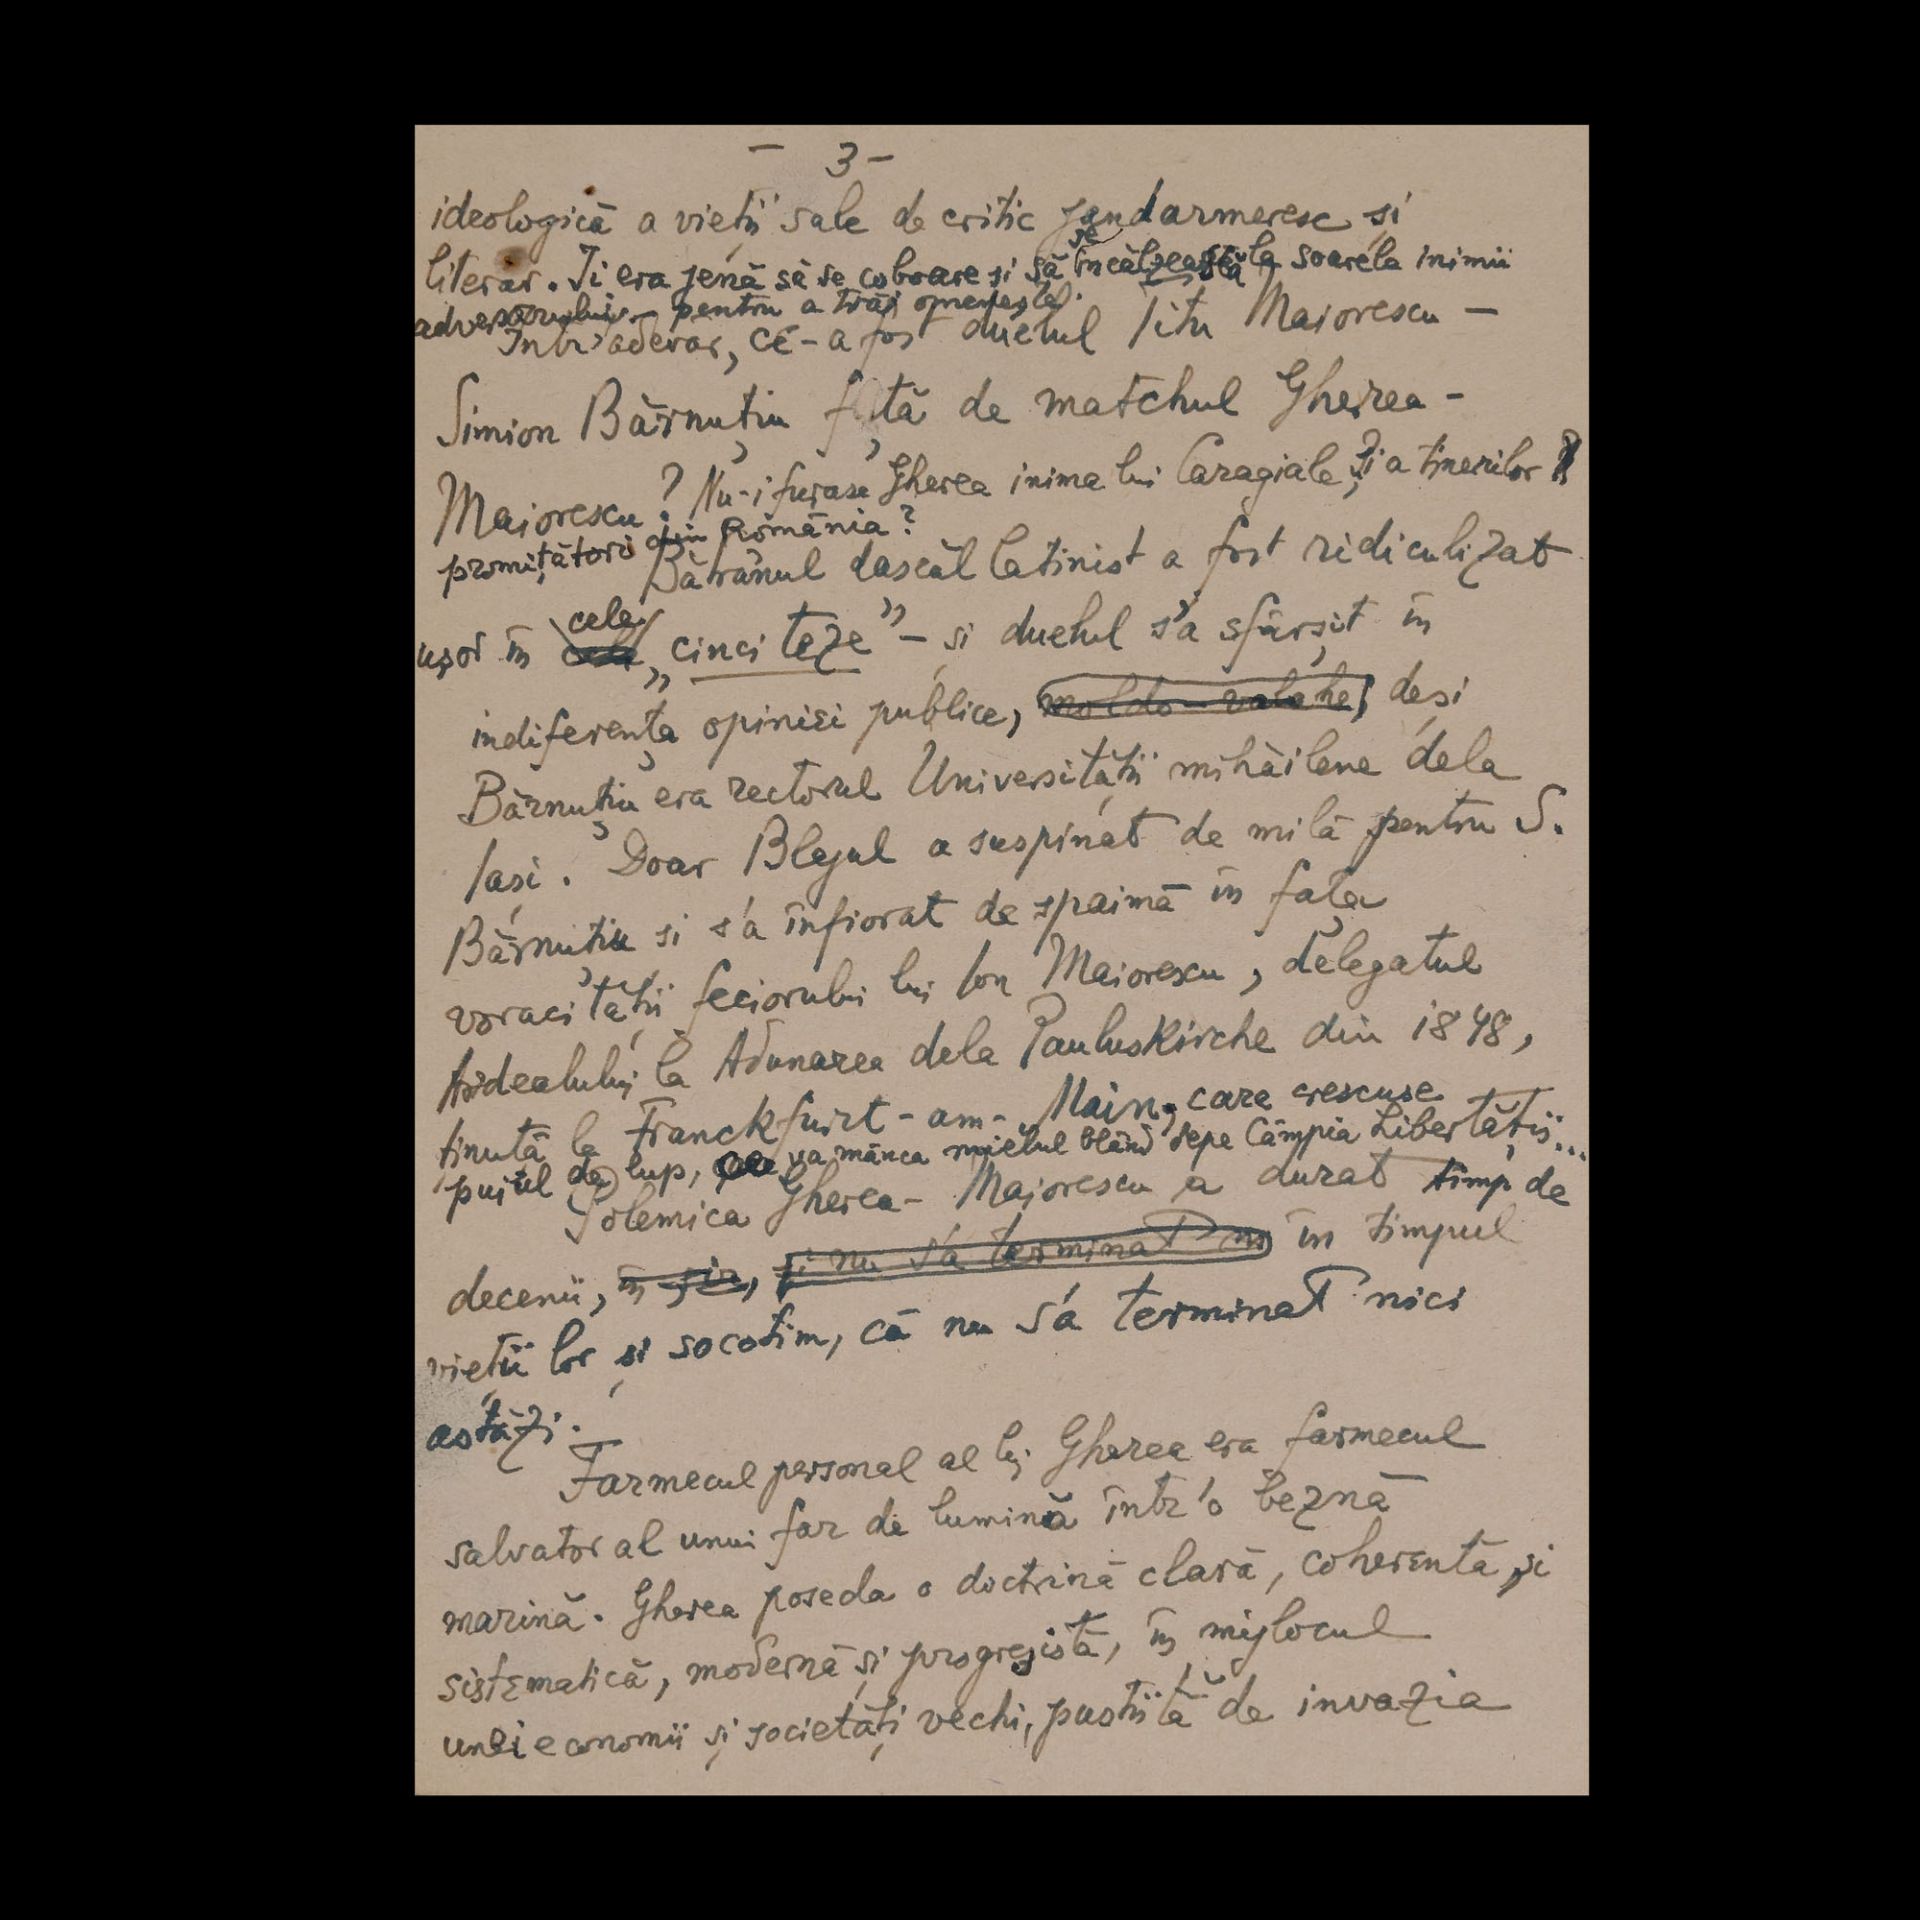 - 3 -
ideologică a vieții sale de critic jandarmeresc și
literar. Ii era jenă să se coboare și să se încălzească la soarele inimii
adversarului - pentru a trăi omenește.
Intr'adevăr, ce-a fost duelul Titu Maiorescu -
Simion Bărnuțiu față de matchul Gherea -
Maiorescu? Nu-i furase Gherea inima lui Caragiale, și a tinerilor
promițători din România?
Bătrânul dascăl latinist a fost ridiculizat
ușor în cele „cinci teze” - și duelul s'a sfârșit în
indiferența opiniei publice, moldo-valahe, deși
Bărnuțiu era rectorul Universității mihăilene dela
Iași. Doar Blajul a suspinat de milă pentru S.
Bărnuțiu și s'a înfiorat de spaimă în fața
voracității feciorului lui Ion Maiorescu, delegatul
Ardealului la Adunarea dela Pauluskirche din 1848,
ținută la Franckfurt-am-Main, care crescuse
puiul de lup, va mânca mielul blând depe Câmpia Libertății...
Polemica Gherea - Maiorescu a durat timp de
decenii, în șir, și nu s'a terminat în timpul
vieții lor și socotim, că nu s'a terminat nici
astăzi.
Farmecul personal al lui Gherea era farmecul
salvator al unui far de lumină într'o beznă
marină. Gherea poseda o doctrină clară, coherentă, și
sistematică, modernă și progresistă, în mijlocul
unei economii și societăți vechi, pustiită de invazia